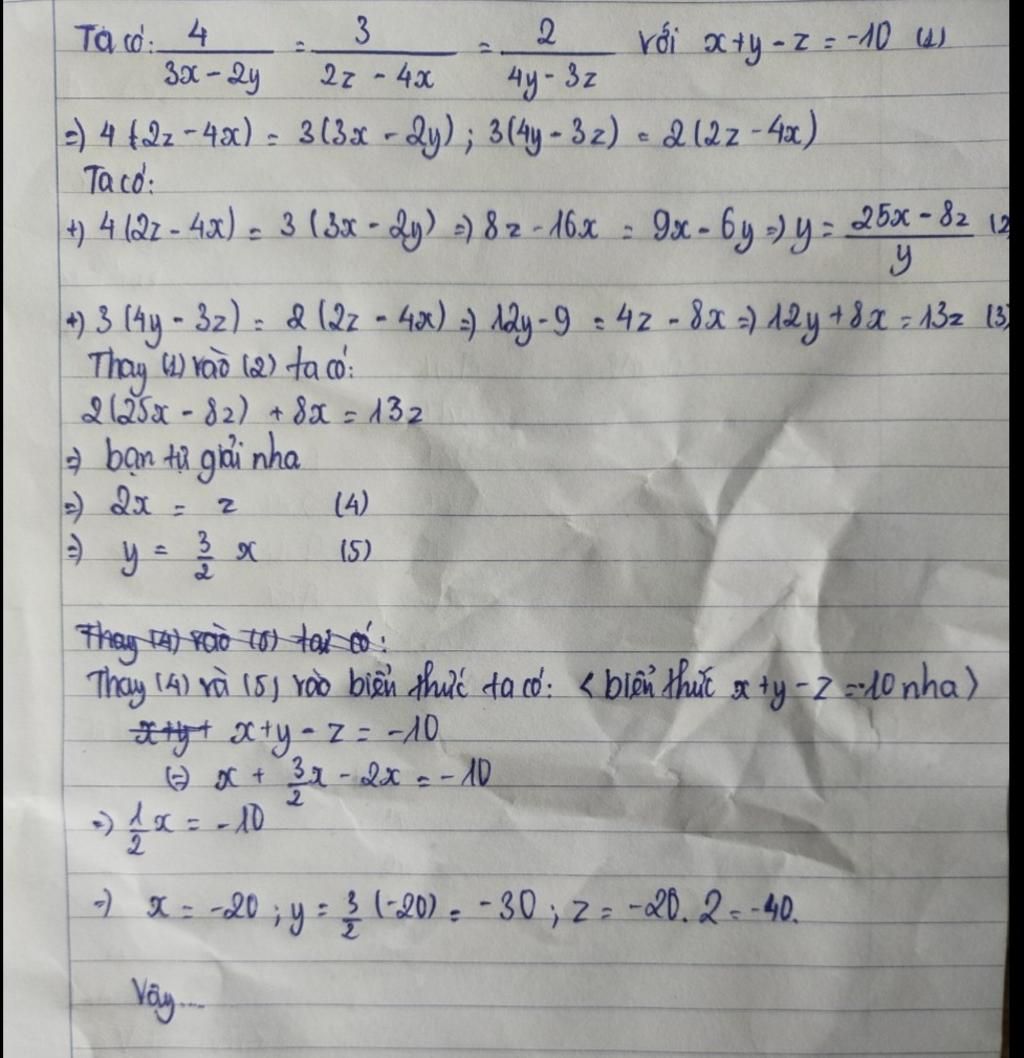 Ta có: 4/(3x - 2y) = 3/(2z - 4x) = 2/(4y - 3z) với x+y-z = -10 (1)
=) 4(2z - 4x) = 3(3x - 2y) ; 3(4y - 3z) = 2(2z - 4x)
Ta có:
+) 4(2z - 4x) = 3(3x - 2y) =) 8z - 16x = 9x - 6y =) y = (25x - 8z)/y (2
+) 3(4y - 3z) = 2(2z - 4x) =) 12y - 9 = 4z - 8x =) 12y + 8x = 13z (3)
Thay (1) vào (2) ta có:
2(25x - 8z) + 8x = 13z
=) bạn tự giải nha
=) 2x = z (4)
=) y = 3/2 x (5)
Thay (4) vào (5) tai có:
Thay (4) và (5) vào biển thức ta có: <biển thức x+y-z = -10 nha>
x+y+ x+y-z = -10
(=) x + 3/2x - 2x = -10
=) 1/2 x = -10
=) x = -20 ; y = 3/2 (-20) = -30 ; z = -20. 2 = -40.
Vậy...